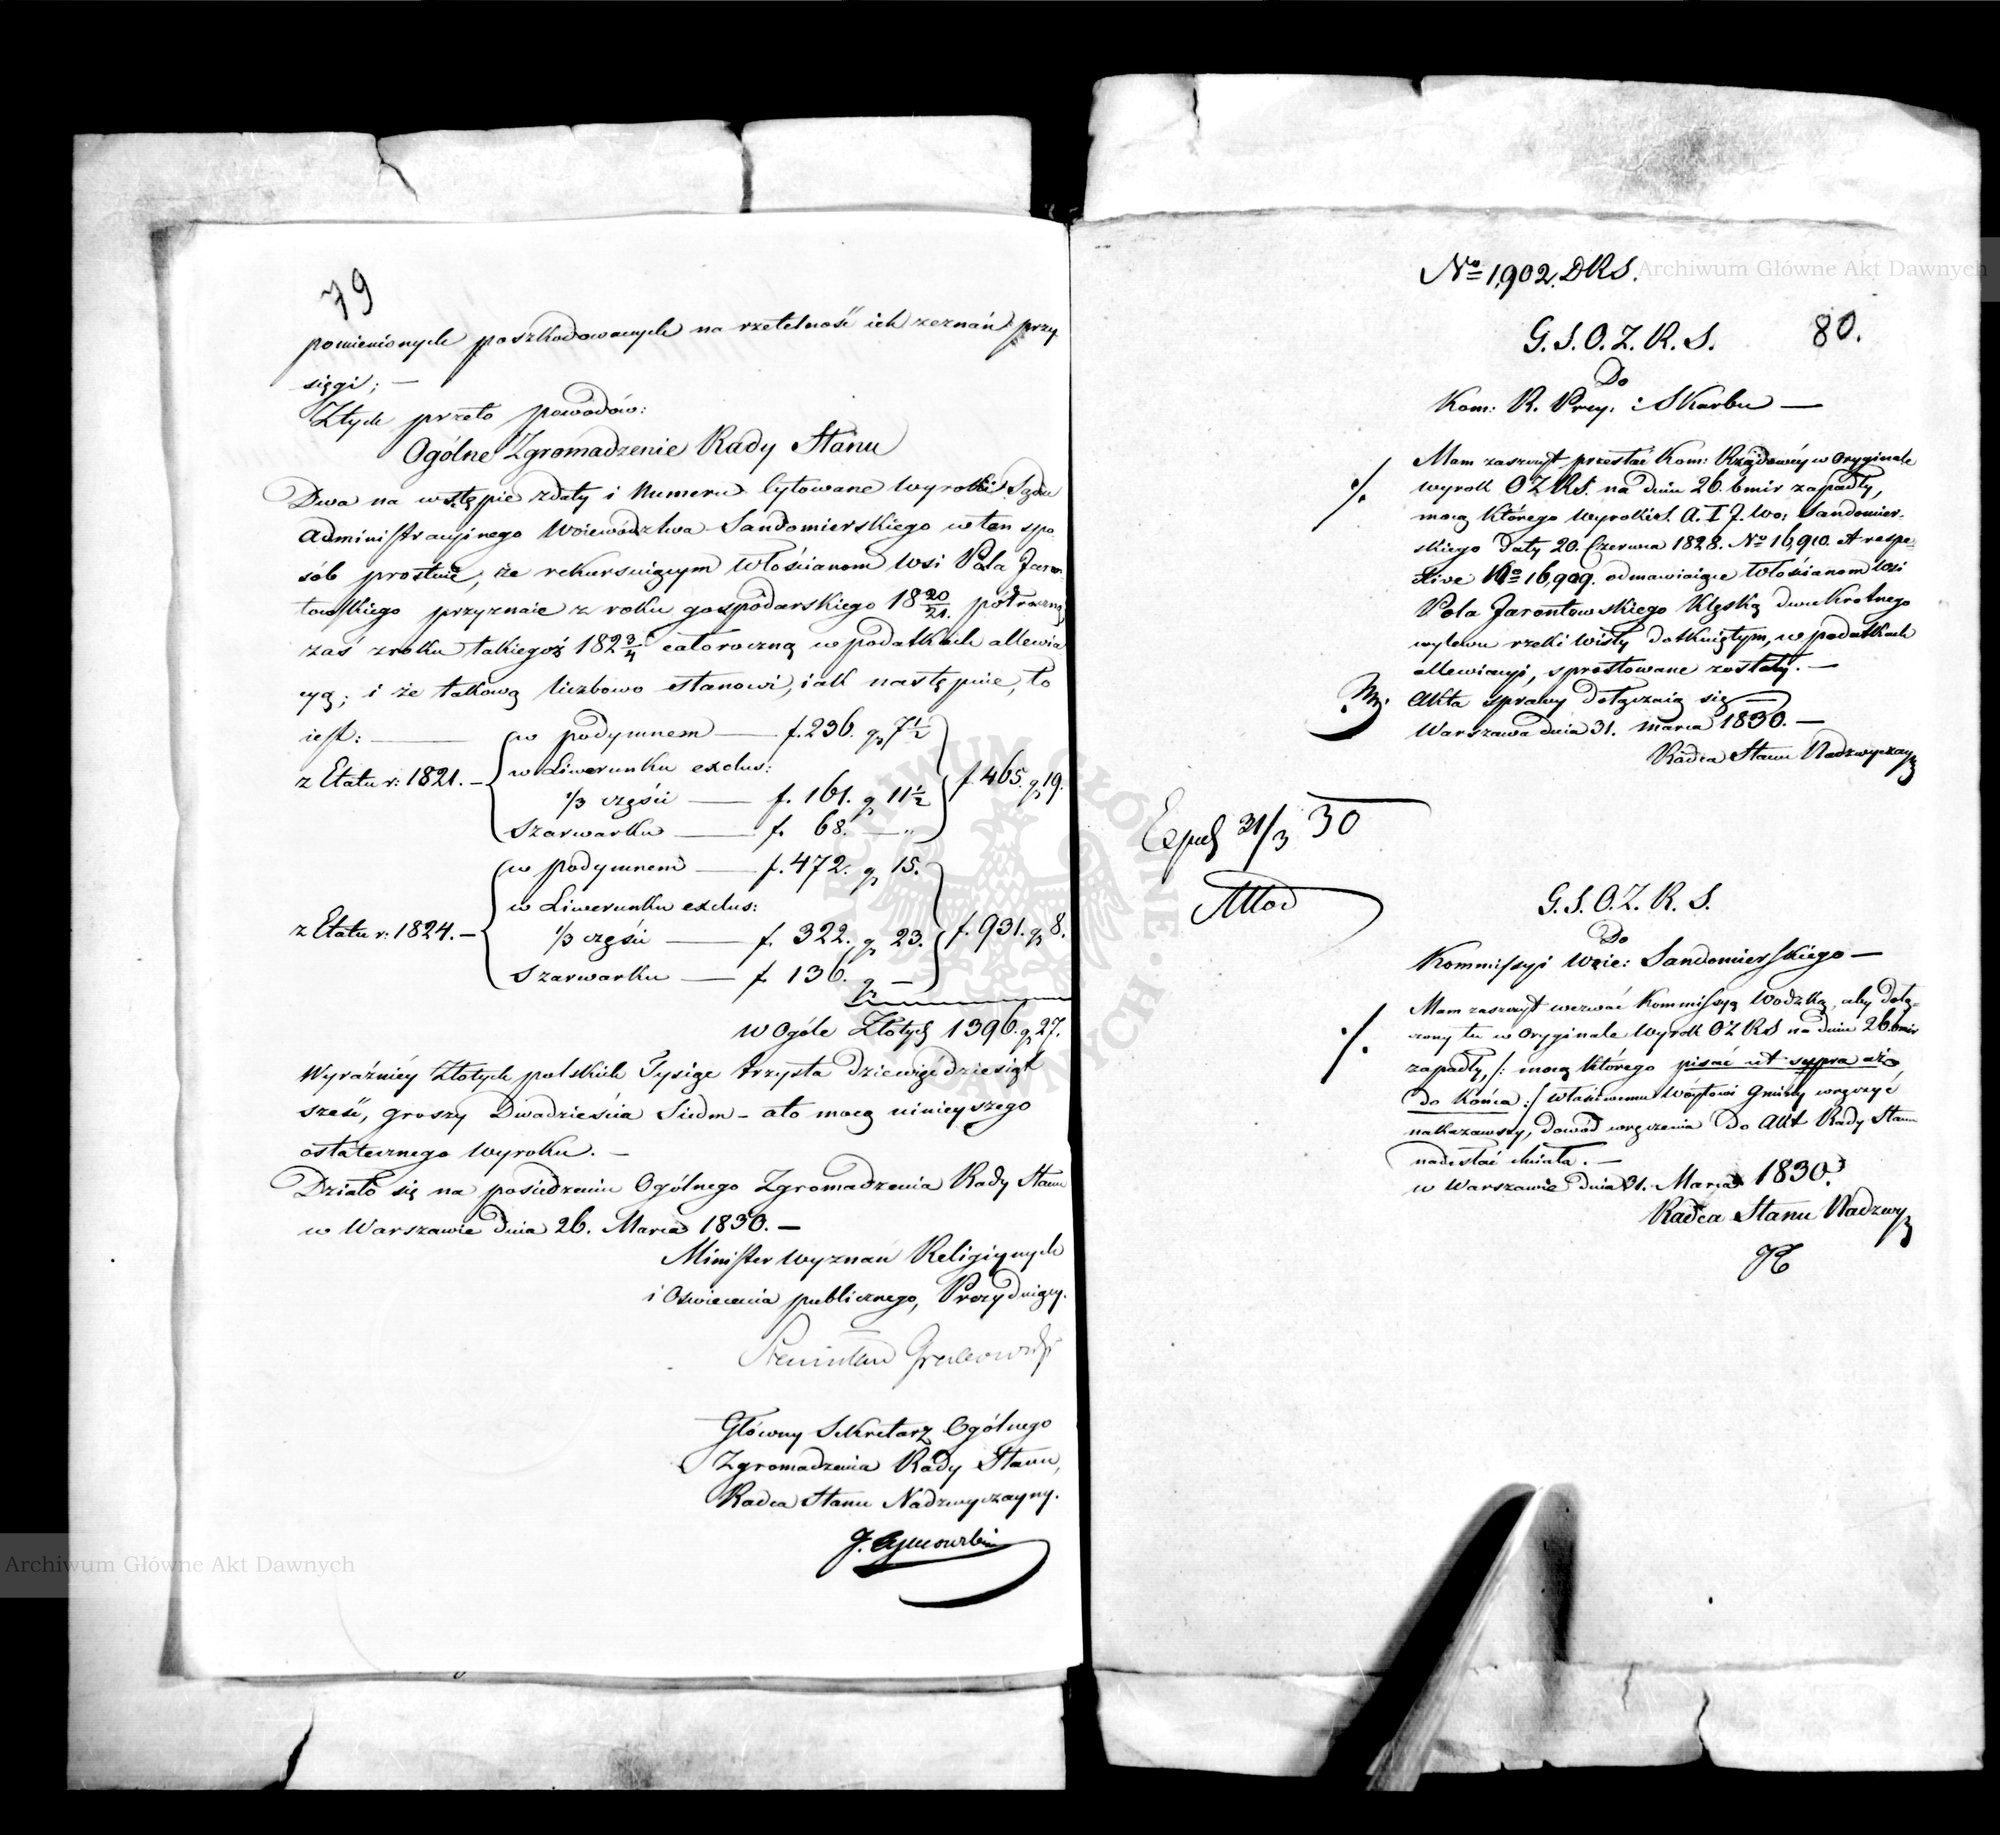 79
pomienionych poszkodowanych na rzetelność ich zeznań przy-
sięgi; —
Ztych przeto powodów:
Ogólne Zgromadzenie Rady Stanu
Dwa na wstępie zdaty i Numeru Cytowane Wyroki Sądu
Administracyjnego Województwa Sandomierskiego w ten spo-
sób prostuie, że rekursuiącym Włościanom Wsi Pola Jaron-
towskiego przyznaie z roku gospodarskiego 18 20/21. półroczną
zaś zroku takiegoż 182 3/4 całoroczną w podatkach allewia-
cyą; i że takową liczbowo stanowi, iak następuie, to
iest: —
z Etatu r: 1821. —
w podymnem — f. 236. gr 7 1/2
w Liwerunku exclus:
1/3 części — f. 161. gr 11 1/2
Szarwarku — f. 68. — "
f. 465. gr 19.
z Etatu r: 1824. —
w podymnem — f. 472. gr 15.
w Liwerunku exclus:
1/3 części — f. 322. gr 23.
Szarwarku — f. 136. gr —
f. 931. gr 8.
W Ogóle Złotych 1396. gr 27.
Wyraźniey Złotych polskich Tysiąc trzysta dziewięćdziesiąt
sześć, groszy Dwadzieścia Siedm – a to mocą ninieyszego
ostatecznego wyroku. —
Działo się na posiedzeniu Ogólnego Zgromadzenia Rady Stanu
w Warszawie dnia 26. Marca 1830. —
Minister Wyznań Religiynych
i Oświecenia publicznego, Prezyduiący.
Stanisław Grabowski
Główny Sekretarz Ogólnego
Zgromadzenia Rady Stanu,
Radca Stanu Nadzwyczayny.
Archiwum Główne Akt Dawnych
No 1,902. DRS.
Archiwum Główne Akt Dawnych
G. S. O. Z. R. S. 80.
Do
Kom: R. Przy: i Skarbu —
Mam zaszczyt przesłać Kom: Rządowéy w Oryginale
wyrok OZRS. na dniu 26. bmir zapadły,
mocą którego Wyroki S. A. I J. Wo: Sandomier-
skiego daty 20. Czerwca 1828. No 16,910. et respe-
ctive No 16,909. odmawiaiące Włościanom Wsi
Pola Jarontowskiego Klęską dwukrotnego
wylewu rzeki Wisły dotkniętym, w podatkach
allewiacyi, sprostowane zostały. —
Akta sprawy dołączaią się —
Warszawa dnia 31. marca 1830. —
Radca Stanu Nadzwyczay
31/3 30
G. S. O. Z. R. S.
Do
Kommissyi Woie: Sandomierskiego —
Mam zaszczyt wezwać Kommissyą Wodzką, aby dołą-
czony tu w Oryginale Wyrok OZRS na dniu 26 bmir
zapadły, /: mocą którego pisać ut supra aż
do końca :/ właściwemu Wóytowi Gminy wręczyć
nakazawszy, dowód wręczenia do Akt Rady Stanu
nadesłać chciała. —
w Warszawie dnia 31. Marca 1830.
Radca Stanu Nadzwy
ARCHIWUM GŁÓWNE AKT DAWNYCH